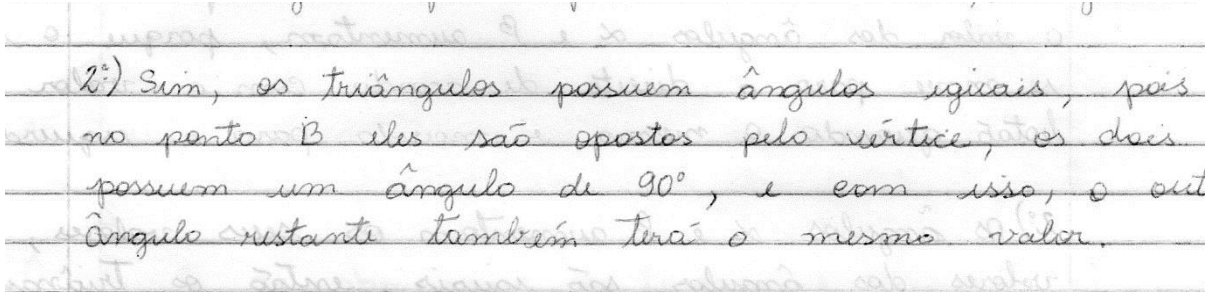 2ª) Sim, os triângulos possuem ângulos iguais, pois
no ponto B eles são opostos pelo vértice, os dois
possuem um ângulo de 90°, e com isso, o out
ângulo restante também terá o mesmo valor.